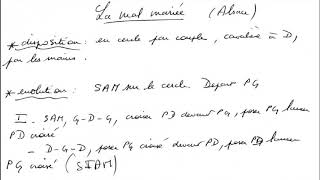 La mal mariée (Alsace)
* disposition : en cercle par couples, cavalière à D,
par les mains.
* évolution : SAM sur le cercle. Départ PG
I - SAM, G-D-G, croiser PD devant PG, poser PG
PD croisé
- D-G-D, poser PG croisé devant PD, poser PD
PG croisé (SIAM)